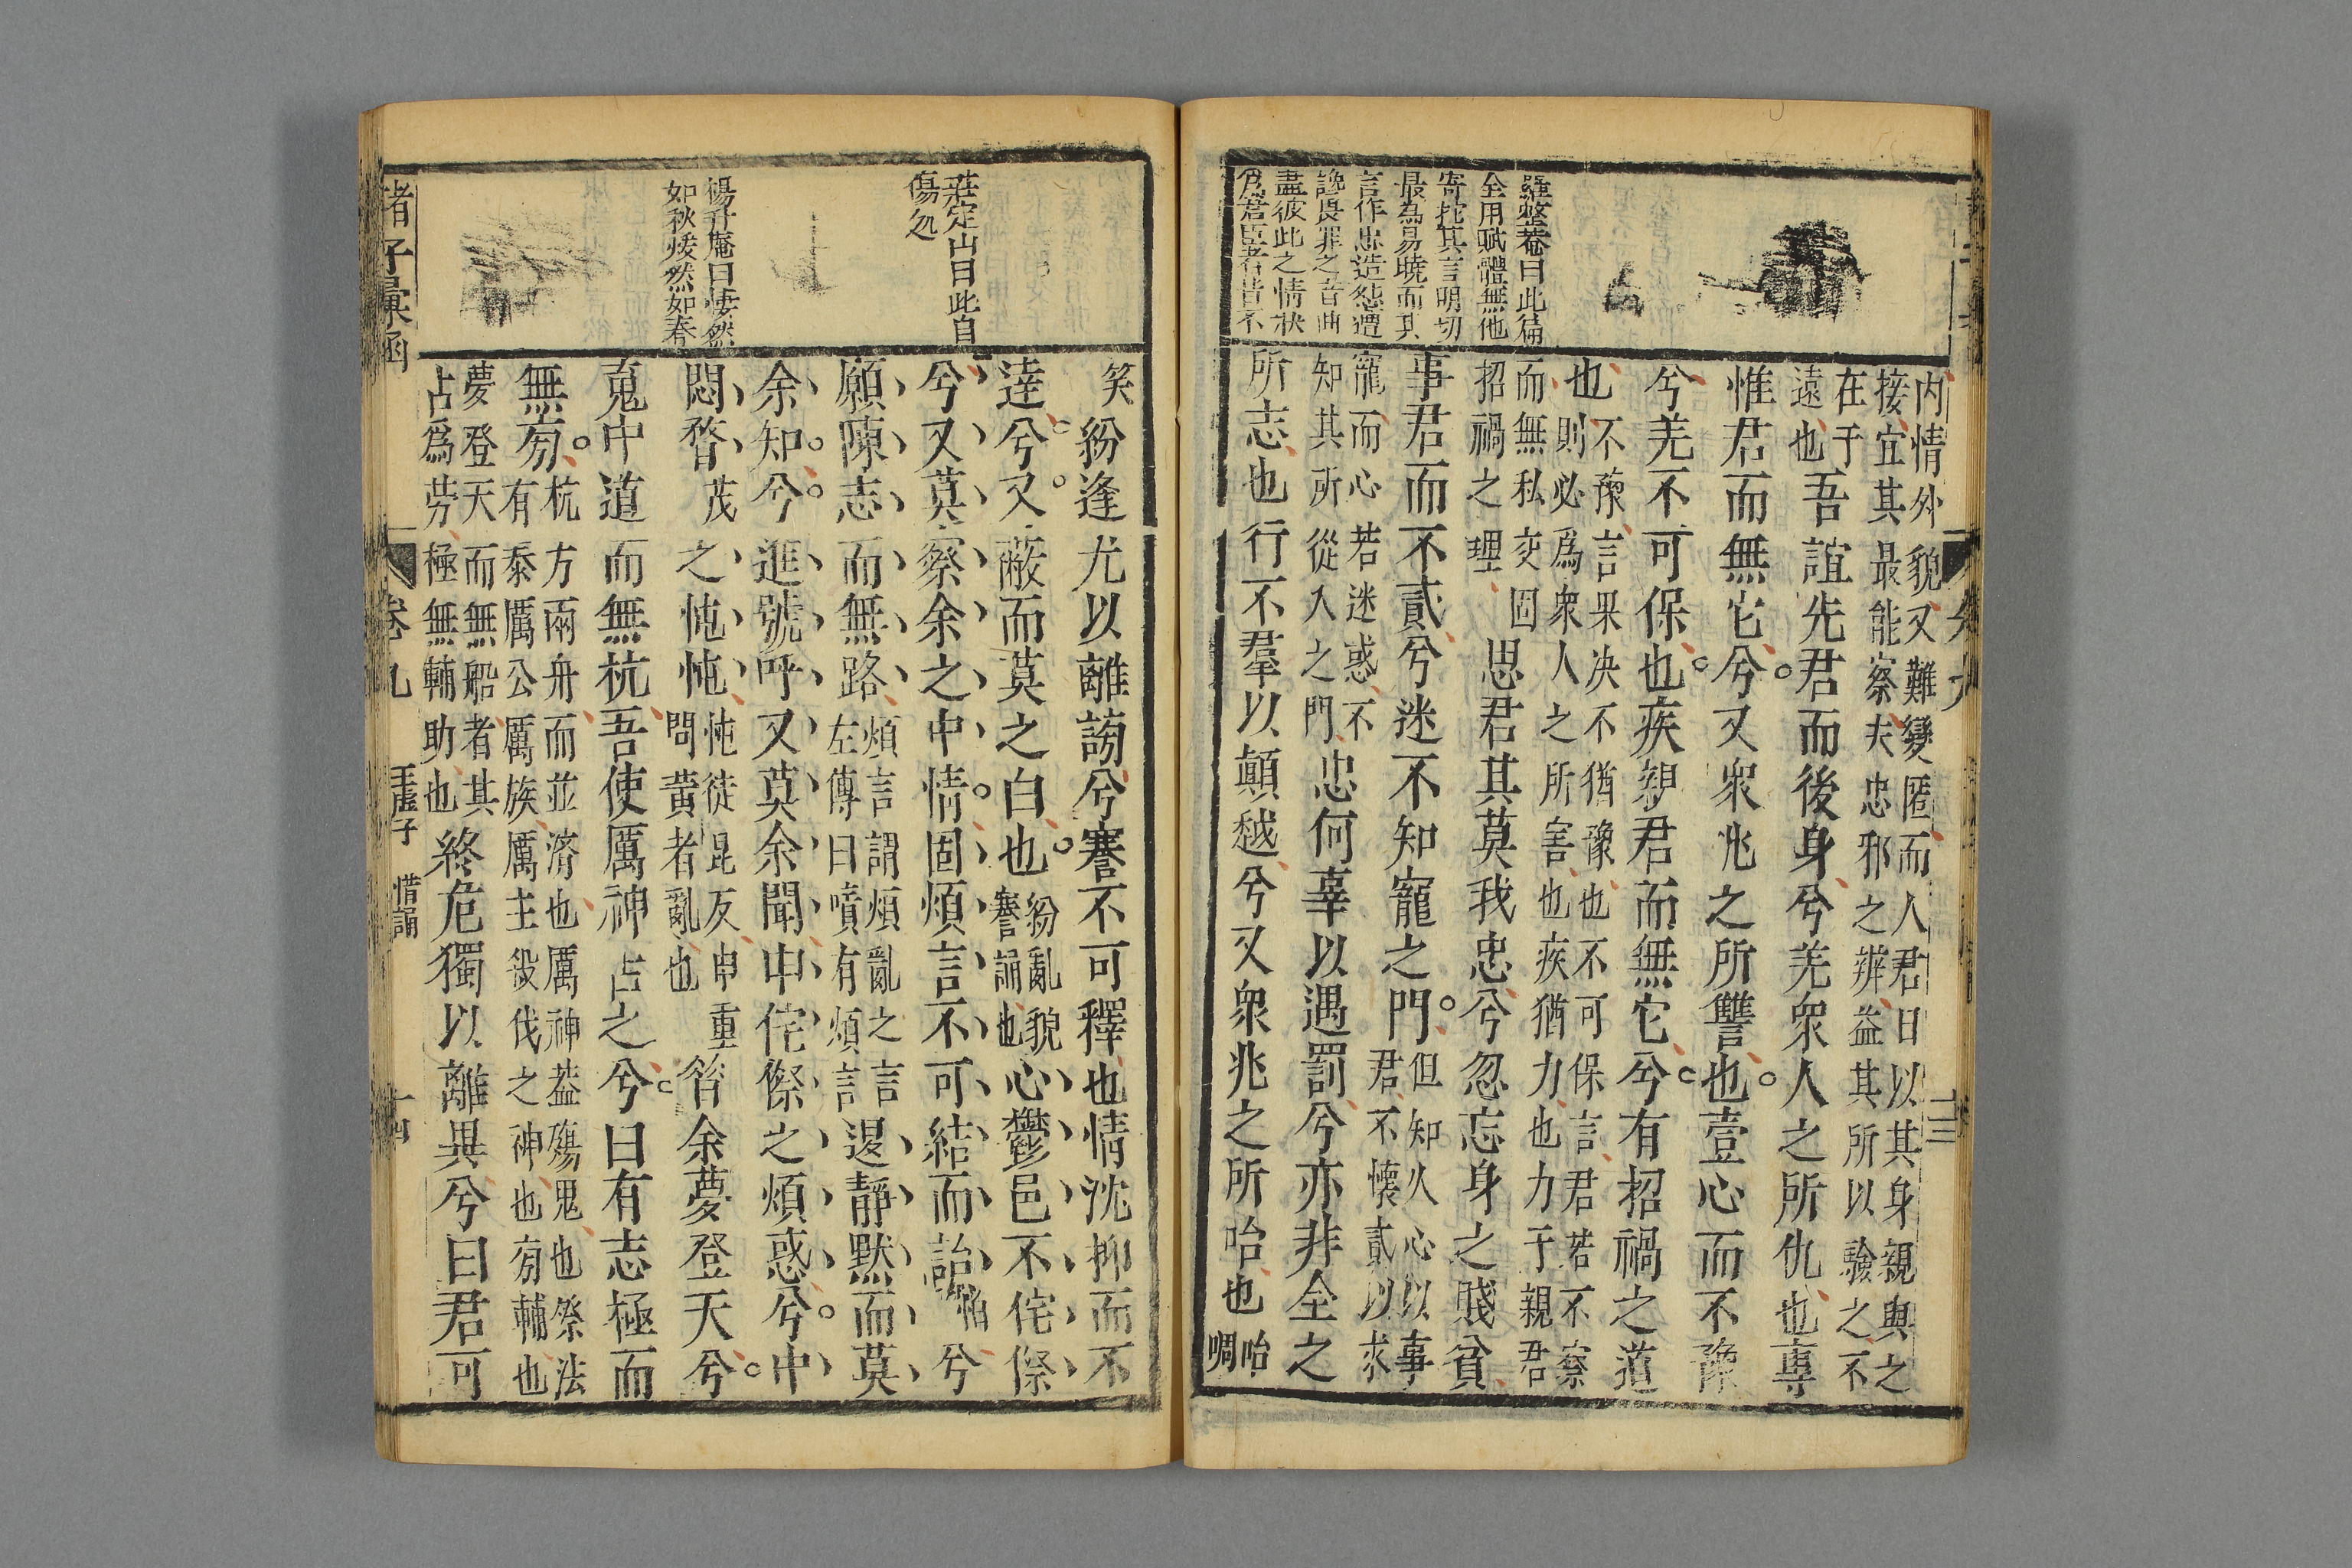 羅整菴曰此篇
全用賦體無他
寄托其言明切
最為易曉而其
言作忠造怨遭
讒畏罪之音曲
盡彼此之情狀
為君臣者皆不
內情外貌又難變匿而人君日以其身親與之
接宜其最能察夫忠邪之辨葢其所以驗之不
在于
遠也吾誼先君而後身兮羌衆人之所仇也專
惟君而無它兮又衆兆之所讐也壹心而不豫
兮羌不可保也疾親君而無它兮有招禍之道
也不豫言果决不猶豫也不可保言君若不察
則必爲衆人之所害也疾猶力也力于親君
而無私交固
招禍之理思君其莫我忠兮忽忘身之賤貧
事君而不貳兮迷不知寵之門但知火心以事
君不懷貳以求
寵而心若迷惑不
知其所從入之門忠何辜以遇罰兮亦非全之
所志也行不羣以顛越兮又衆兆之所咍也咍
啁
卷九
十三
莊定山曰此自
傷処
楊升庵曰悽然
如秋煖然如春
笑紛逢尤以離謗兮謇不可釋也情沈抑而不
達兮又蔽而莫之白也紛亂貌
謇誦也心鬱邑不侘傺
兮又莫察余之中情固煩言不可結而詒怡兮
願陳志而無路煩言謂煩亂之言
左傳曰嘖有煩言退靜默而莫
余知兮進號呼又莫余聞申侘傺之煩惑兮中
悶瞀茂之忳忳忳徒昆反申重
問黄者亂也昝余夢登天兮
䰟中道而無杭吾使厲神占之兮曰有志極而
無旁杭方兩舟而並濟也厲神葢殤鬼也祭法
有泰厲公厲族厲主殺伐之神也旁輔也
夢登天而無船者其
占爲勞極無輔助也終危獨以離異兮曰君可
諸子彙函
卷九
玉虛子
惜誦
十四